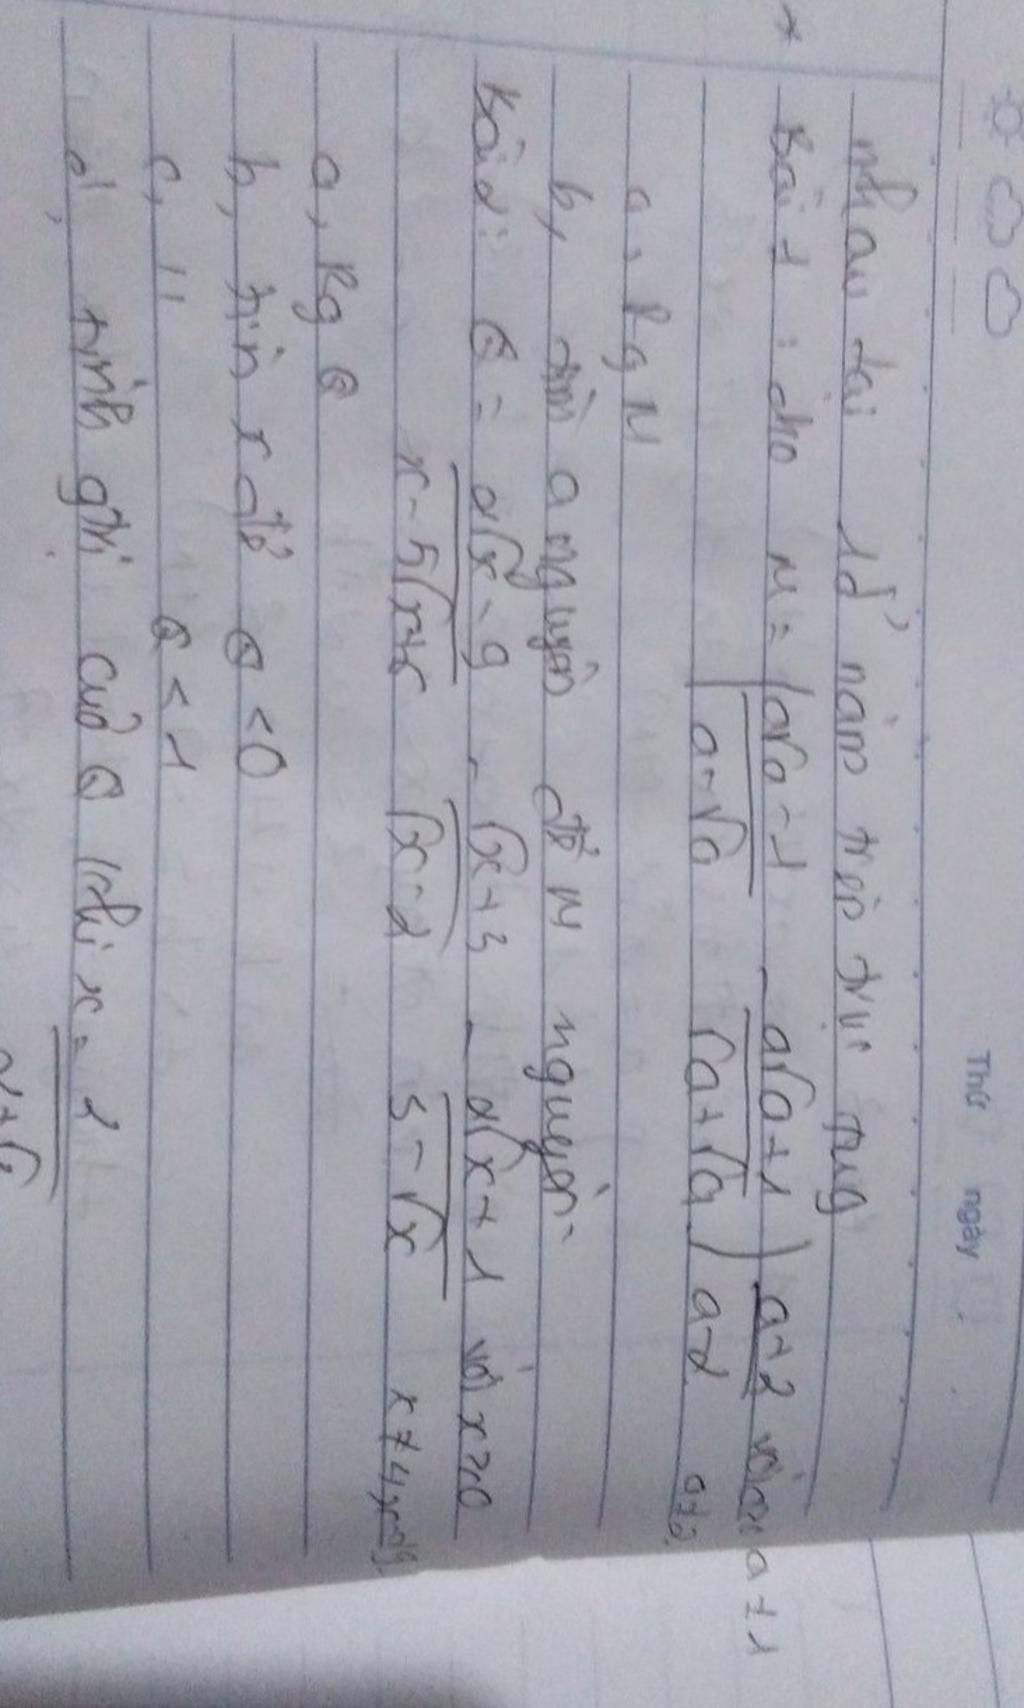 Thứ ngày
nhau tại 1đ' nằm trên trục tung
* Bài 1 : cho M = ( a√a - 1 / a - √a - a√a + 1 / a + √a ) a+2 / a-2 với a ≠ 1 a≠2
a, Rg M
b, tìm a nguyên để M nguyên.
Bài 2: Q = 2√x - 9 / x - 5√x + 6 - √x + 3 / √x - 2 - 2√x + 1 / 3 - √x với x≥0 x ≠ 4, x≠9
a, Rg Q
b, tìm x để Q < 0
c, 11 Q < 1
d, tính gtri của Q khi x = 2 / 2+√3